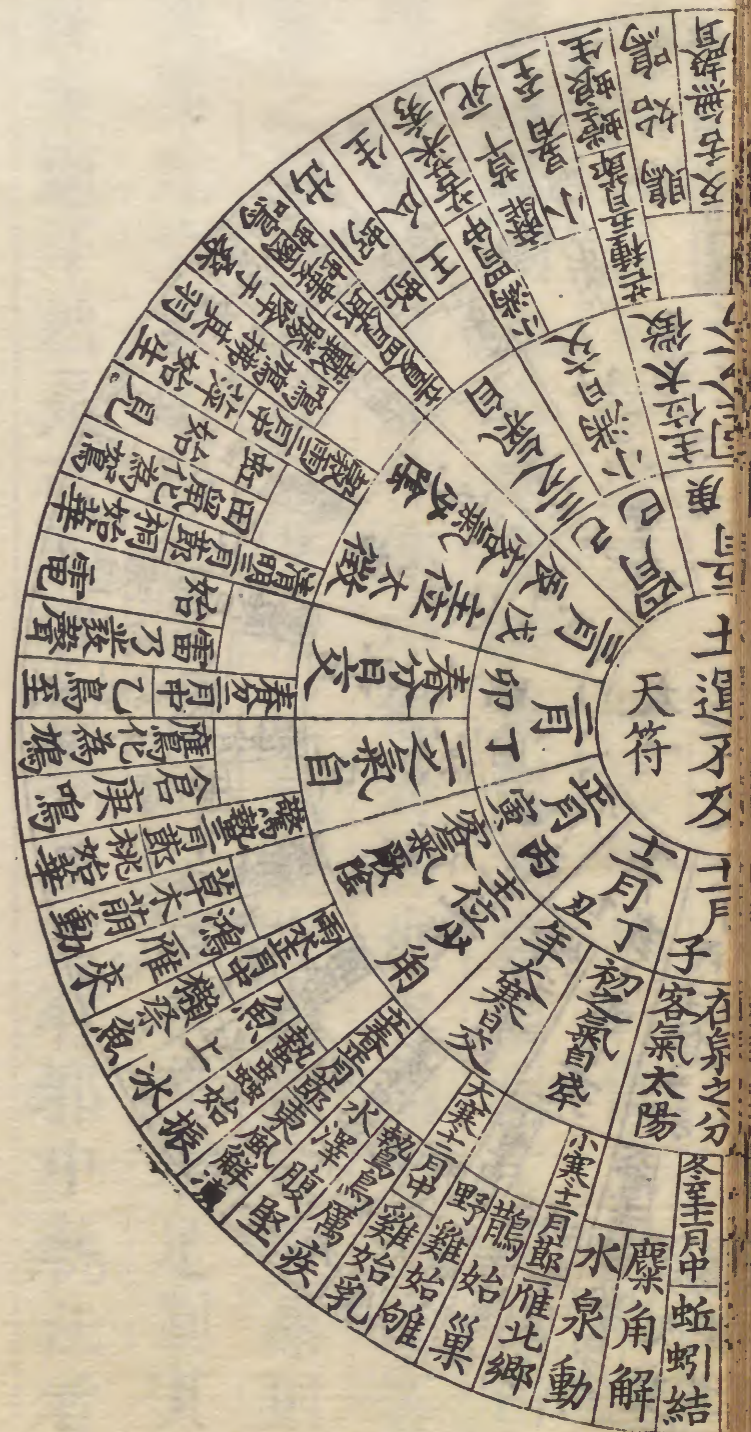 土運不及
天符
十一月
子
十二月丁
丑
正月丙
寅
二月丁
卯
三月戊
辰
四月己
巳
五月
庚
在泉之分
客氣太陽
初之氣自
年大寒日交
主位少角
客氣厥陰
二之氣自
春分日交
主位太徵
客氣少陰
三之氣自
小滿日交
主位太徵
冬至十一月中
蚯蚓結
麋角解
水泉動
小寒十二月節
雁北鄉
鵲始巢
野雞始雊
大寒十二月中
雞始乳
鷙鳥厲疾
水澤腹堅
立春正月節
東風解凍
蟄蟲始振
魚上冰
雨水正月中
獺祭魚
鴻雁來
草木萌動
驚蟄二月節
桃始華
倉庚鳴
鷹化為鳩
春分二月中
乙鳥至
雷乃發聲
始電
清明三月節
桐始華
田鼠化為鴽
虹始見
穀雨三月中
萍始生
鳴鳩拂其羽
戴勝降于桑
立夏四月節
螻蟈鳴
蚯蚓出
王瓜生
小滿四月中
苦菜秀
靡草死
小暑至
芒種五月節
螳螂生
鵙始鳴
反舌無聲